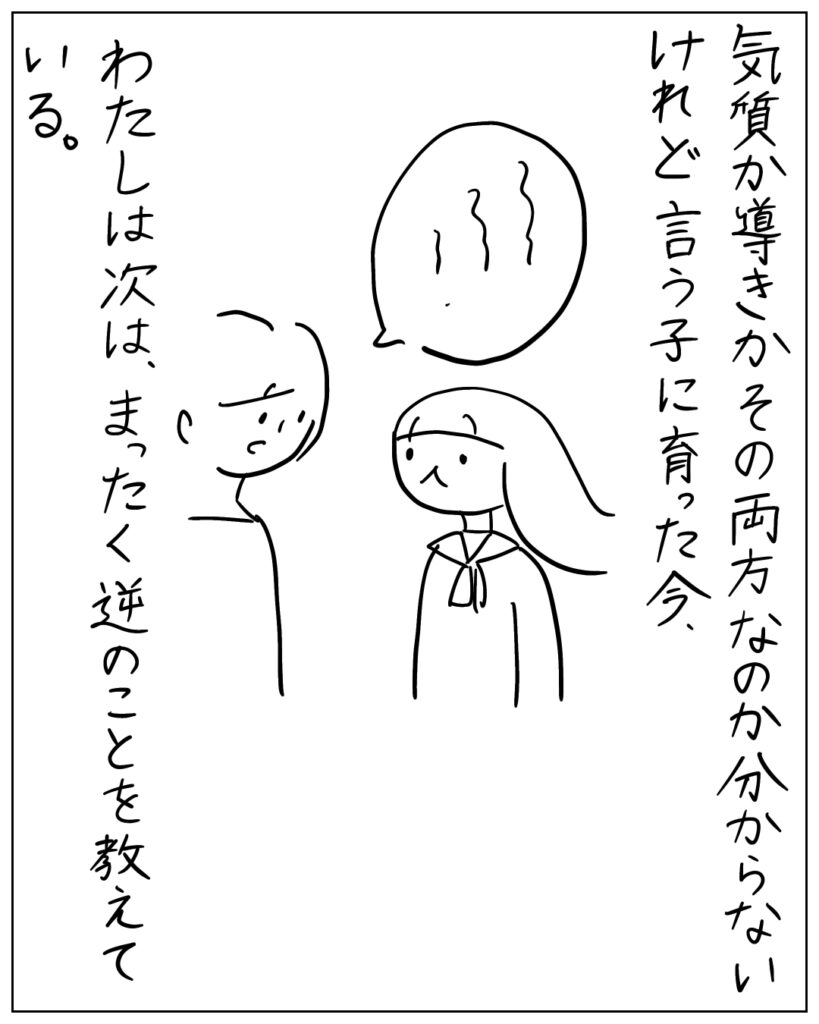 気質か導きかその両方なのか分からない
けれど言う子に育った今、
わたしは次は、まったく逆のことを教えて
いる。